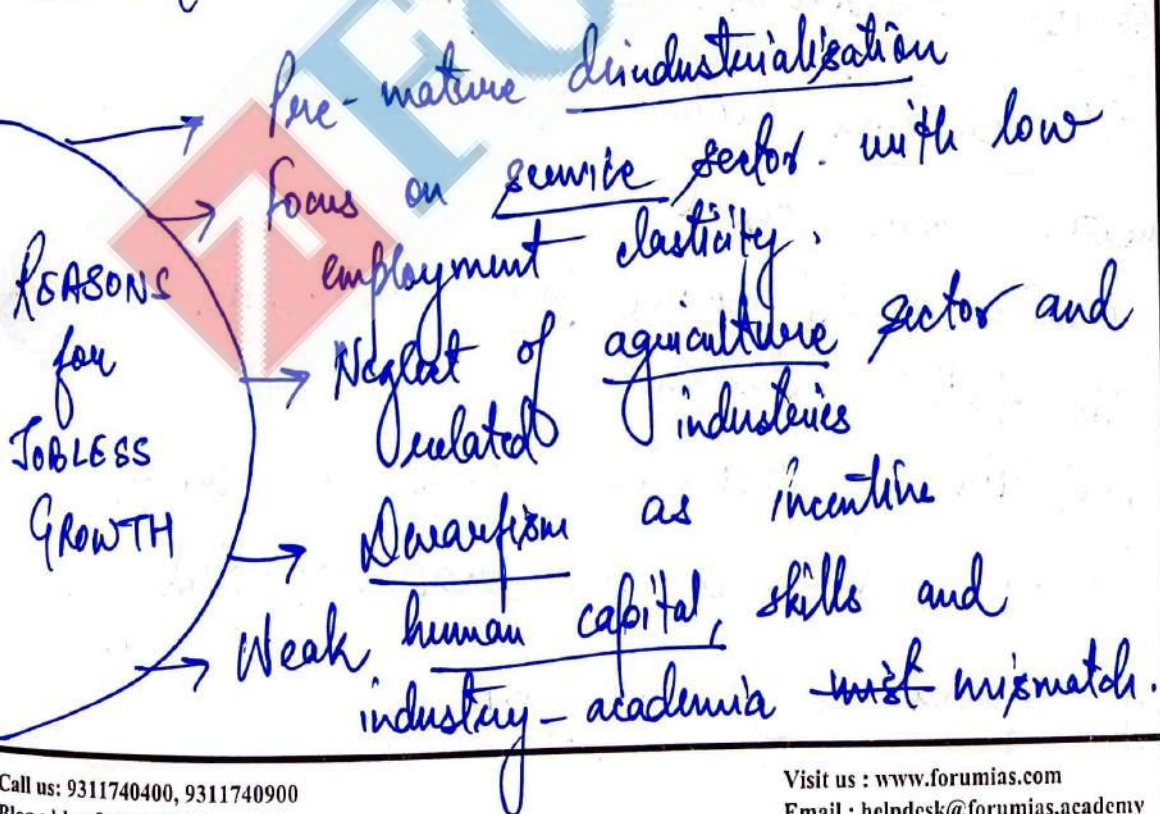 Pre-mature deindustrialisation
focus on service sector. with low
employment elasticity.
REASONS
for
JOBLESS
GROWTH
Neglect of agriculture sector and
related industries
Dwarfism as incentive
Weak human capital, skills and
industry-academia mist mismatch.
Call us: 9311740400, 9311740900
Visit us : www.forumias.com
Email : helpdesk@forumias.academy